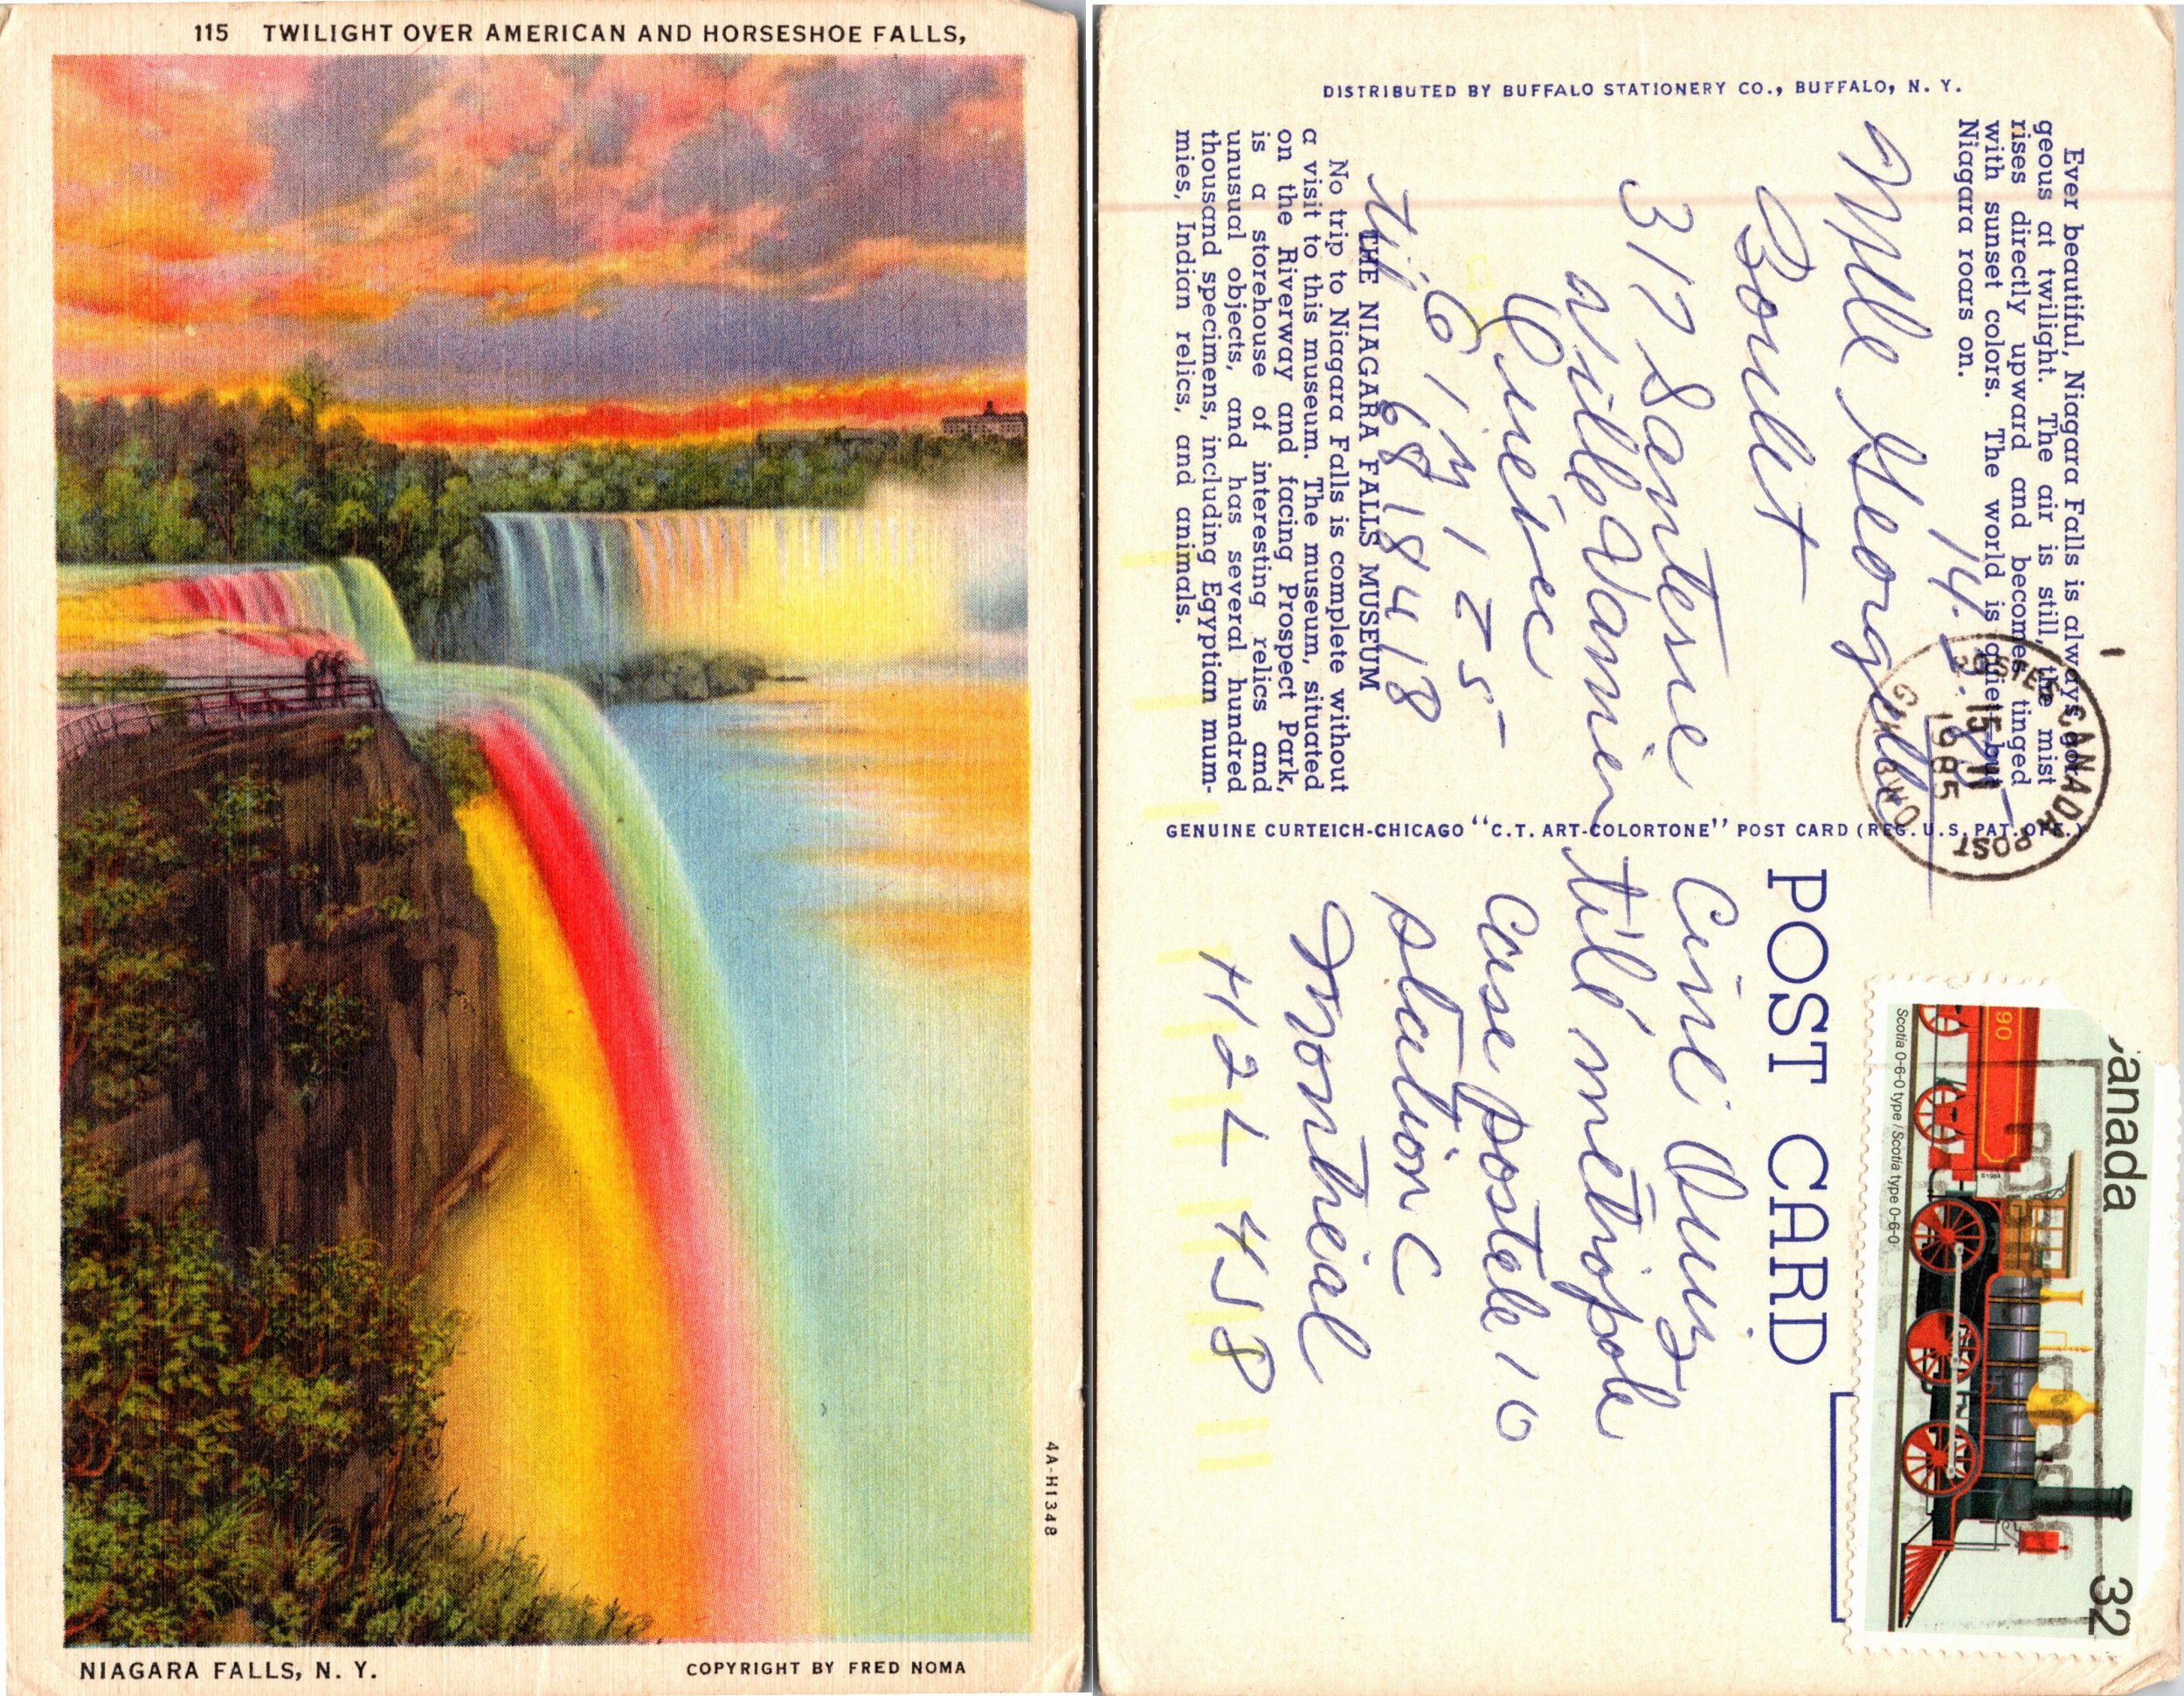 115 TWILIGHT OVER AMERICAN AND HORSESHOE FALLS,
NIAGARA FALLS, N. Y.
COPYRIGHT BY FRED NOMA
4A-H1348
DISTRIBUTED BY BUFFALO STATIONERY CO., BUFFALO, N. Y.
Ever beautiful, Niagara Falls is always gor-
geous at twilight. The air is still, the mist
rises directly upward and becomes tinged
with sunset colors. The world is quiet—but
Niagara roars on.
14.
Mlle Georgette
Boulet
317 Santesne
Ville Vanier
Québec
G1M 1Z5
THE NIAGARA FALLS MUSEUM
til 6818418
No trip to Niagara Falls is complete without
a visit to this museum. The museum, situated
on the Riverway and facing Prospect Park,
is a storehouse of interesting relics and
unusual objects, and has several hundred
thousand specimens, including Egyptian mum-
mies, Indian relics, and animals.
GENUINE CURTEICH-CHICAGO "C.T. ART-COLORTONE" POST CARD (REG. U.S. PAT. OFF.)
POSTES CANADA POST
15 II
1985
POST CARD
Ciné Quiz
télé métropole
Case postale 10
station C
Montréal
H2L 4J8
Canada
32
90
Scotia 0-6-0 type / Scotia type 0-6-0
©1984